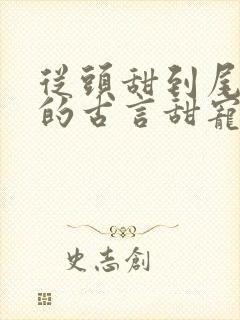 從頭甜到尾
的古言甜寵
史志創